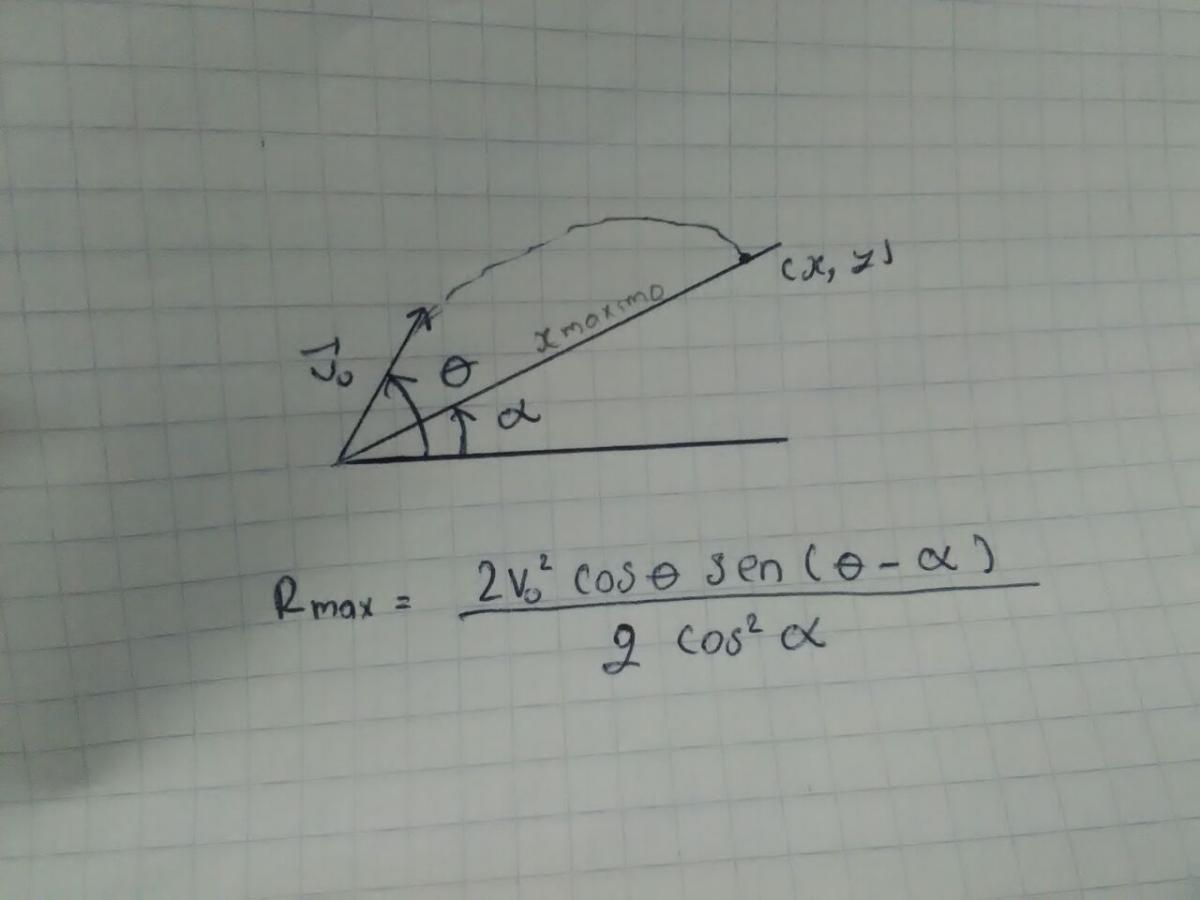 (x, z)
x maximo
V₀
θ
α
Rmax = 2V₀² cos θ sen (θ - α) / g cos² α